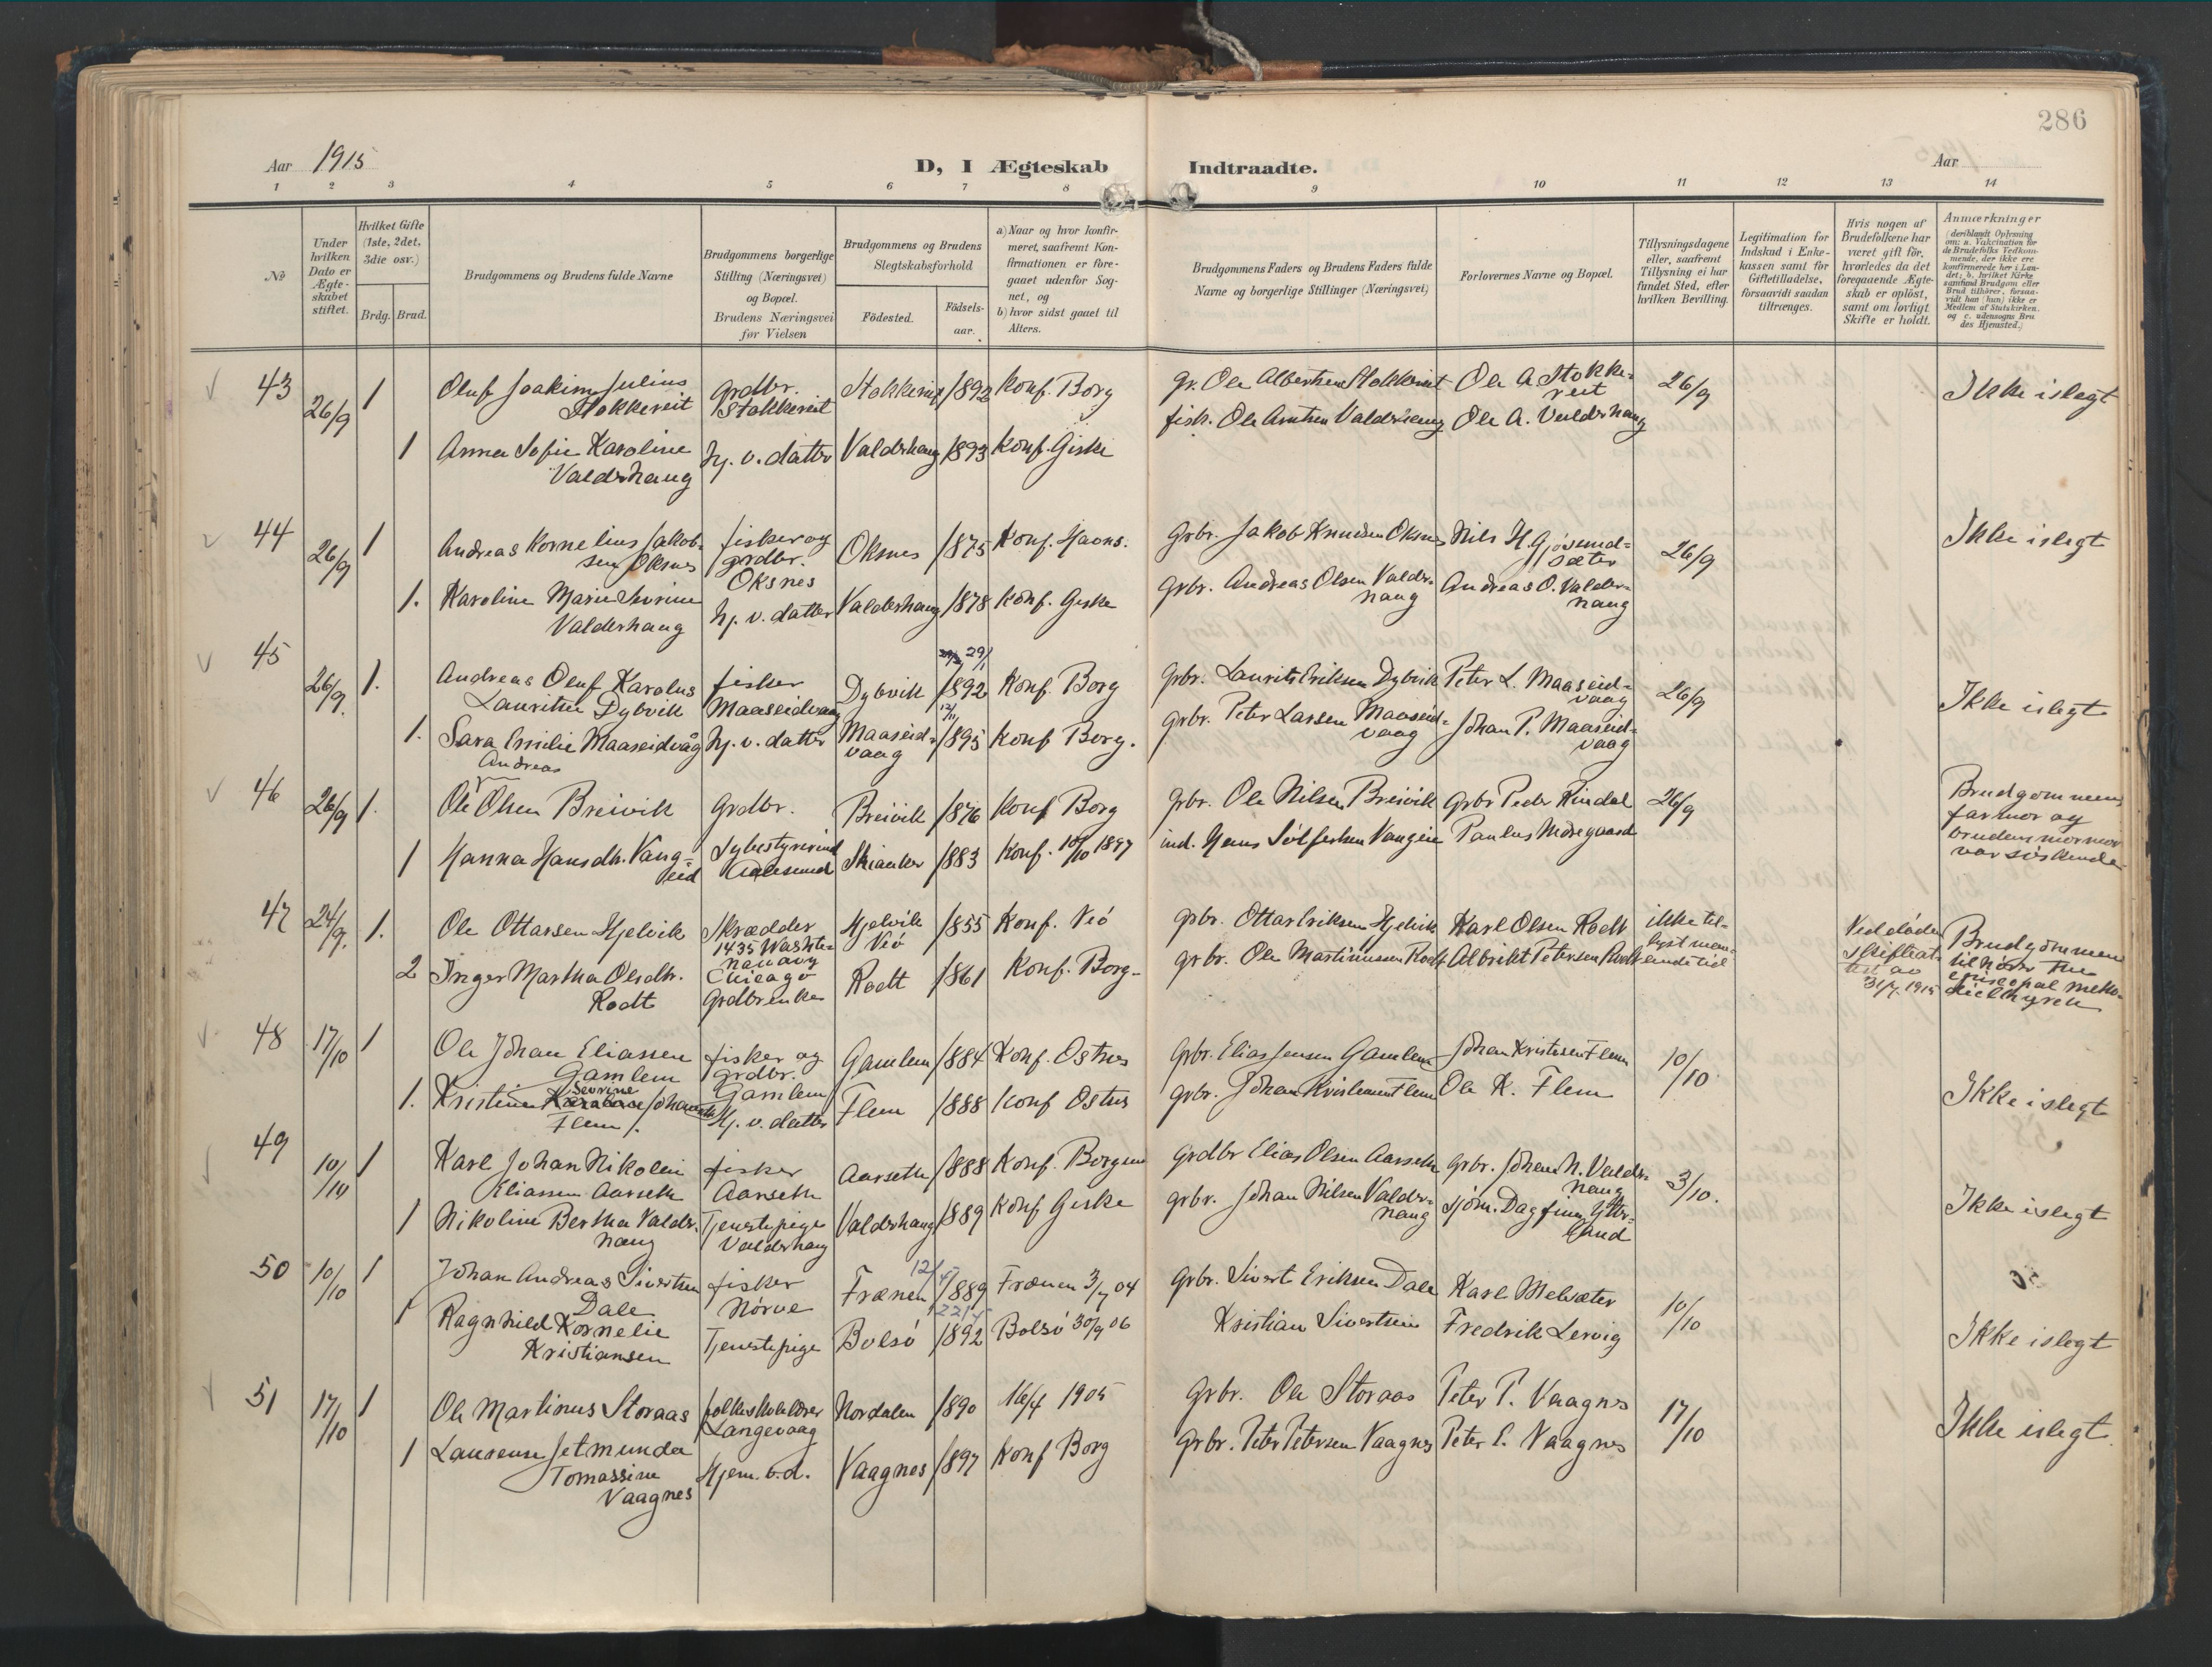 286
Aar 1915
D, I Ægteskab Indtraadte.
Aar
1 2 3 4 5 6 7 8 9 10 11 12 13 14
№
Under hvilken Dato er Ægteskabet stiftet.
Hvilket Gifte (1ste, 2det, 3die osv.)
Brdg. Brud.
Brudgommens og Brudens fulde Navne
Brudgommens borgerlige Stilling (Næringsvei) og Bopæl. Brudens Næringsvei før Vielsen
Brudgommens og Brudens Slegtskabsforhold
Fødested.
Fødselsaar.
a) Naar og hvor konfirmeret, saafremt Konfirmationen er foregaaet udenfor Sognet, og
b) hvor sidst gaaet til Alters.
Brudgommens Faders og Brudens Faders fulde Navne og borgerlige Stillinger (Næringsvei)
Forlovernes Navne og Bopæl.
Tillysningsdagene eller, saafremt Tillysning ei har fundet Sted, efter hvilken Bevilling.
Legitimation for Indskud i Enkekassen samt for Giftetilladelse, forsaavidt saadan tiltrænges.
Hvis nogen af Brudefolkene har været gift før, hvorledes da det foregaaende Ægteskab er opløst, samt om lovligt Skifte er holdt.
Anmærkninger
(deriblandt Oplysning om: a. Vakcination for de Brudefolks Vedkommende, der ikke ere konfirmerede her i Landet; b. hvilket Kirkesamfund Brudgom eller Brud tilhører, forsaavidt han (hun) ikke er Medlem af Statskirken. og c. udensogns Brudes Hjemsted.)
43 26/9 1 Oluf Joakim Julius Stokkereit grdbr. Stokkereit 1892 Konf. Borg gr. Ole Albertsen Stokkereit Ole A. Stokkereit 26/9 Ikke i slegt
1 Anna Sofie Karoline Valderhaug hj. v. datter Valderhaug 1893 Konf. Giske fisk. Ole Valderhaug Ole A. Valderhaug
44 26/9 1 Andreas Kornelius Jakobsen Oksnes fisker og grdbr. Oksnes Oksnes 1875 Konf. grbr. Jakob Knudsen Oksnes Nils H. 26/9 Ikke i slegt
1. Karoline Marie Severine Valderhaug hj. v. datter Valderhaug 1878 Konf. Giske grbr. Andreas Olsen Valderhaug Andreas O. Valderhaug
45 26/9. 1. Andreas Oluf Karolus Lauritsen Dybvik fisker Maaseidvaag Dybvik 29/1 1892 Konf. Borg grbr. Laurits Eriksen Dybvik Peter L. Maaseidvaag 26/9 Ikke i slegt
1. Sara Emilie Maaseidvåg hj. v. datter Maaseidvaag 12/11 1895 Konf Borg. grbr. Peter Larsen Maaseidvaag Johan P. Maaseidvaag
46 26/9 1. Ole Andreas Olsen Breivik grdbr. Breivik 1876 Konf Borg grbr. Ole Nilsen Breivik grbr Peder Rindal 26/9 Brudgommens farmor og brudens mormor var søskende
1 Hanna Hansdtr. Vangeid Sybestyrerinde Aalesund 1883 Konf. 10/10 1897 ind. Hans Vangen Paulus Mdregaard
47 24/9. 1. Ole Ottarsen Hjelvik Skrædder 1435 Washtenau avg Chicago Hjelvik Veö 1855 Konf. Veö grbr. Ottar Eriksen Hjelvik Karl Olsen Rødt ikke tillyst Ved døden 31/7. 1915 Brudgommen tilhører the episcopal methodistkyrch
2 Inger Martha Olsdtr. Rødt Grdbrenke Rødt 1861 Konf. Borg. grbr. Ole Martinussen Rødt Albrikt Petersen Rødt
48 17/10 1 Ole Johan Eliassen Gamlem fisker og grdbr. Gamlem Gamlem 1884 Konf. Ostnes Grbr. Elias Jensen Gamlem Johan Kristensen Flem 10/10. Ikke i slegt
1. Kristine Severine Flem Hj. v. datter Flem 1888 Konf Ostnes grbr. Johan Kristensen Flem Ole K. Flem
49 10/10 1 Karl Johan Nikolai Eliassen Aarseth fisker Aarseth Aarseth 1888 Konf. Borgund Grdbr Elias Olsen Aarseth Grbr. Johan N. Valderhaug 3/10. Ikke i slegt
1 Nikoline Bertha Valderhaug Tjenestepige Valderhaug Valderhaug 1889 Konf Giske grbr. Johan Nilsen Valderhaug sjöm. Dagfinn Ytterland
50 10/10 1 Johan Andreas Sivertsen Dale fisker Nörve Frænen 1889 Frænen 3/7 04 grbr. Sivert Eriksen Dale Karl Melsæter 10/10 Ikke i slegt
1 Ragnhild Kornelie Kristiansen Tjenestepige Bolsö 1892 Bolsö 30/9 06 Kristian Sivertsen Fredrik Lervig
51 17/10 1 Ole Martinus Storaas folkeskolelærer Langevaag Nordalen 1890 16/4 1905 grbr. Ole Storaas Peter P. Vaagnes 17/10 Ikke i slegt.
1 Laurense Jetmunda Tomassine Vaagnes Hjem. v. d. Vaagnes 1897 Konf Borg grbr. Peter Petersen Vaagnes Peter E. Vaagnes